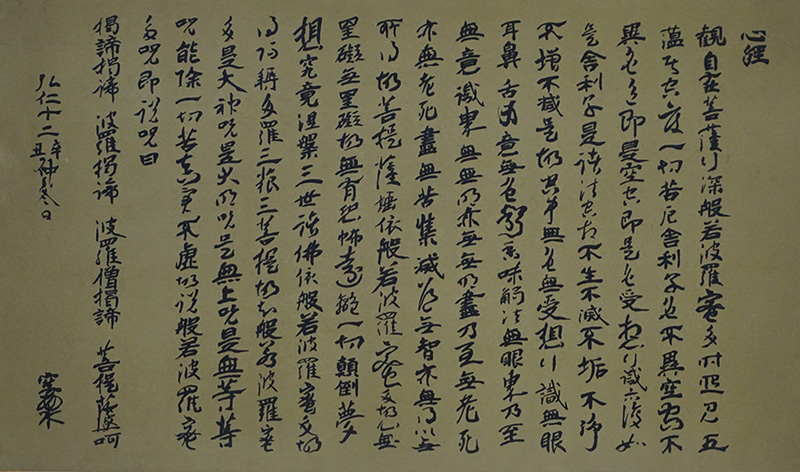 心経
観自在菩薩行深般若波羅蜜多時照見五
蘊皆空度一切苦厄舍利子色不異空空不
異色色即是空空即是色受想行識亦復如
是舍利子是諸法空相不生不滅不垢不浄
不増不減是故空中無色無受想行識無眼
耳鼻舌身意無色聲香味觸法無眼界乃至
無意識界無無明亦無無明盡乃至無老死
亦無老死盡無苦集滅道無智亦無得以無
所得故菩提薩埵依般若波羅蜜多故心無
罣礙無罣礙故無有恐怖遠離一切顛倒夢
想究竟涅槃三世諸佛依般若波羅蜜多故
得阿耨多羅三藐三菩提故知般若波羅蜜
多是大神呪是大明呪是無上呪是無等等
呪能除一切苦真實不虚故説般若波羅蜜
多呪即説呪曰
揭諦揭諦 波羅揭諦 波羅僧揭諦 菩提薩婆呵
弘仁十二辛丑仲冬日
空海